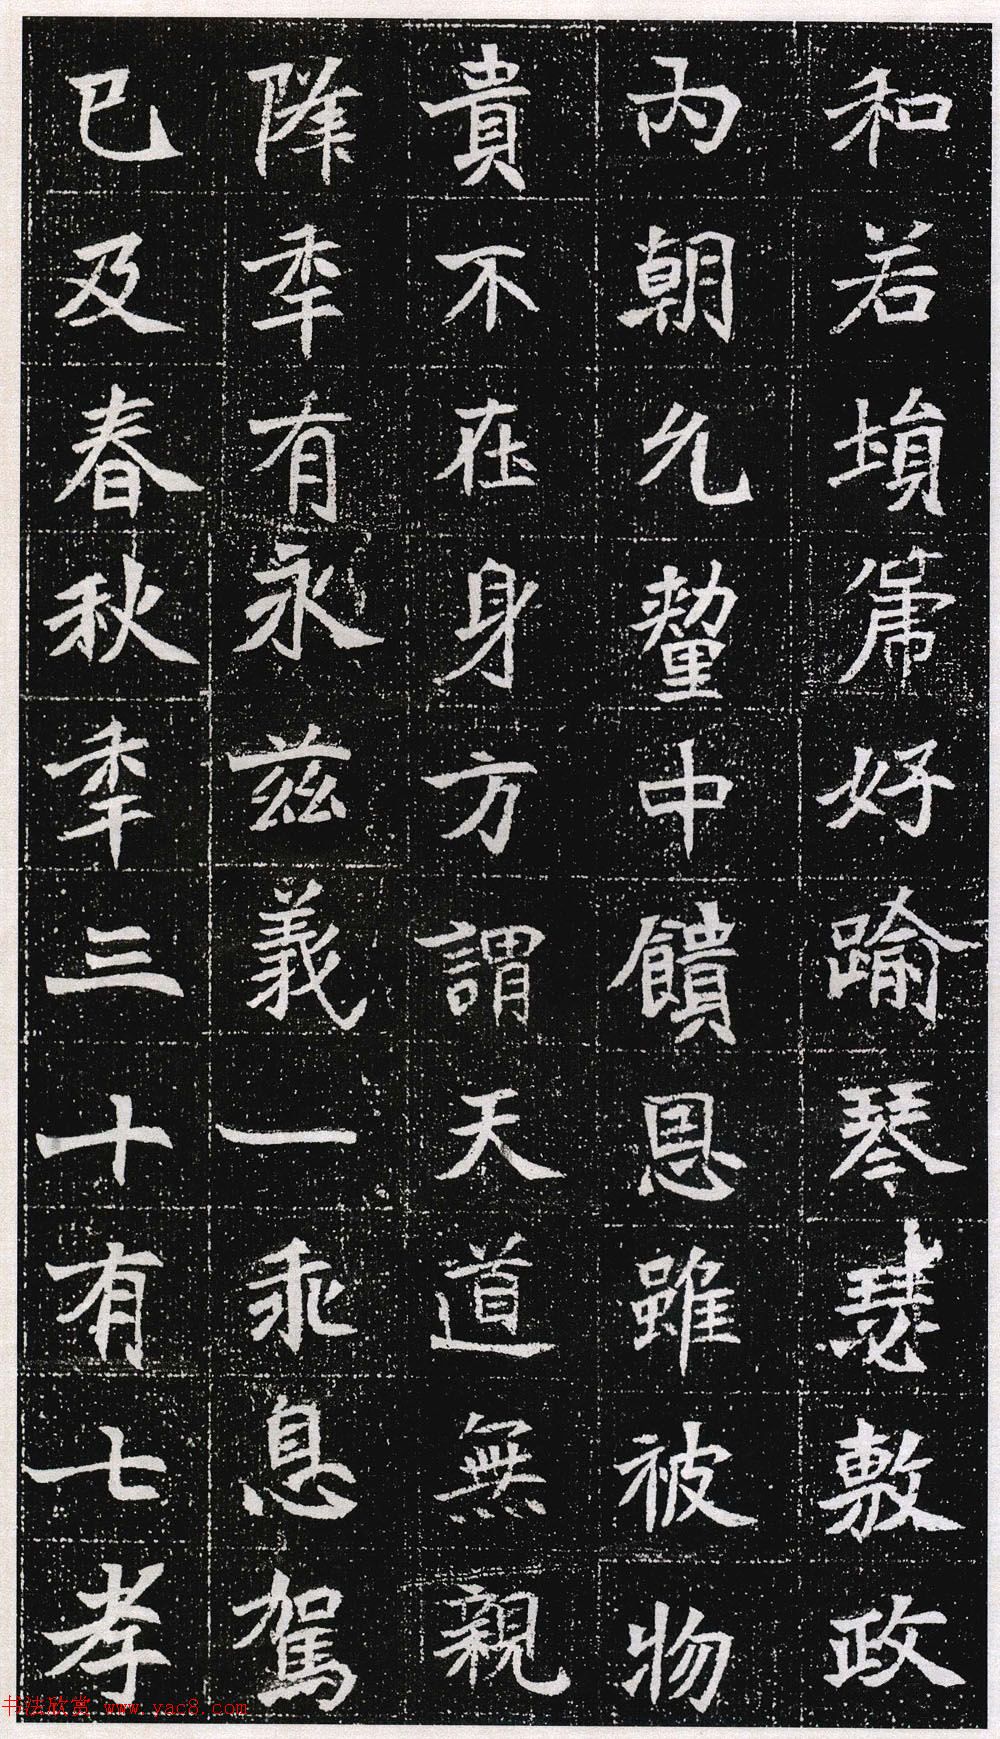 和若塤篪好踰琴瑟敷政
內朝允釐中饋恩雖被物
貴不在身方謂天道無親
降秊有永茲義一乖息駕
已及春秋秊三十有七孝
书法欣赏 www.yac8.com